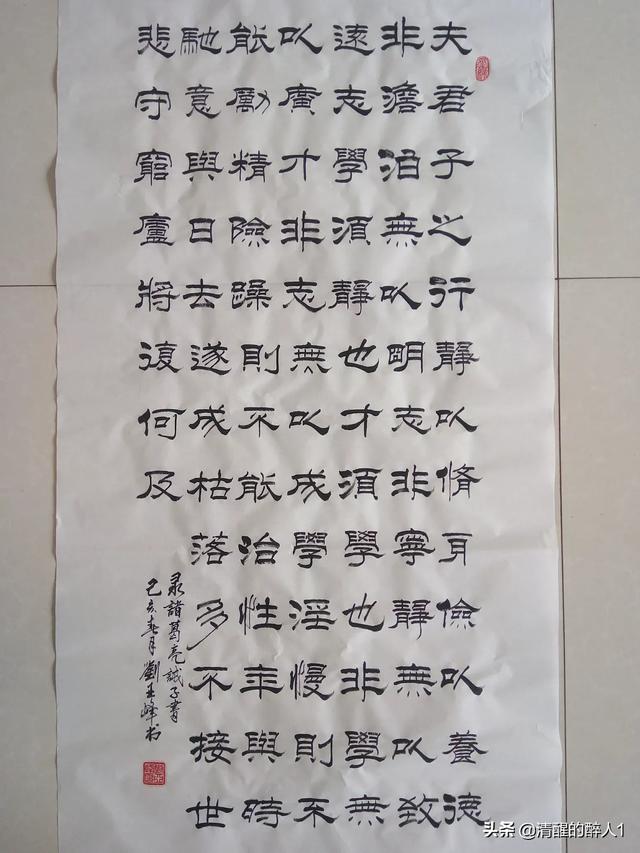 夫君子之行靜以脩身儉以養德
非澹泊無以明志非寧靜無以致
遠志學須靜也才須學也非學無
以廣才非志無以成學淫慢則不
能勵精險躁則不能治性年與時
馳意與日去遂成枯落多不接世
悲守窮廬將復何及
录諸葛亮誡子書
己亥春月劉峰书
头条 @清醒的醉人1